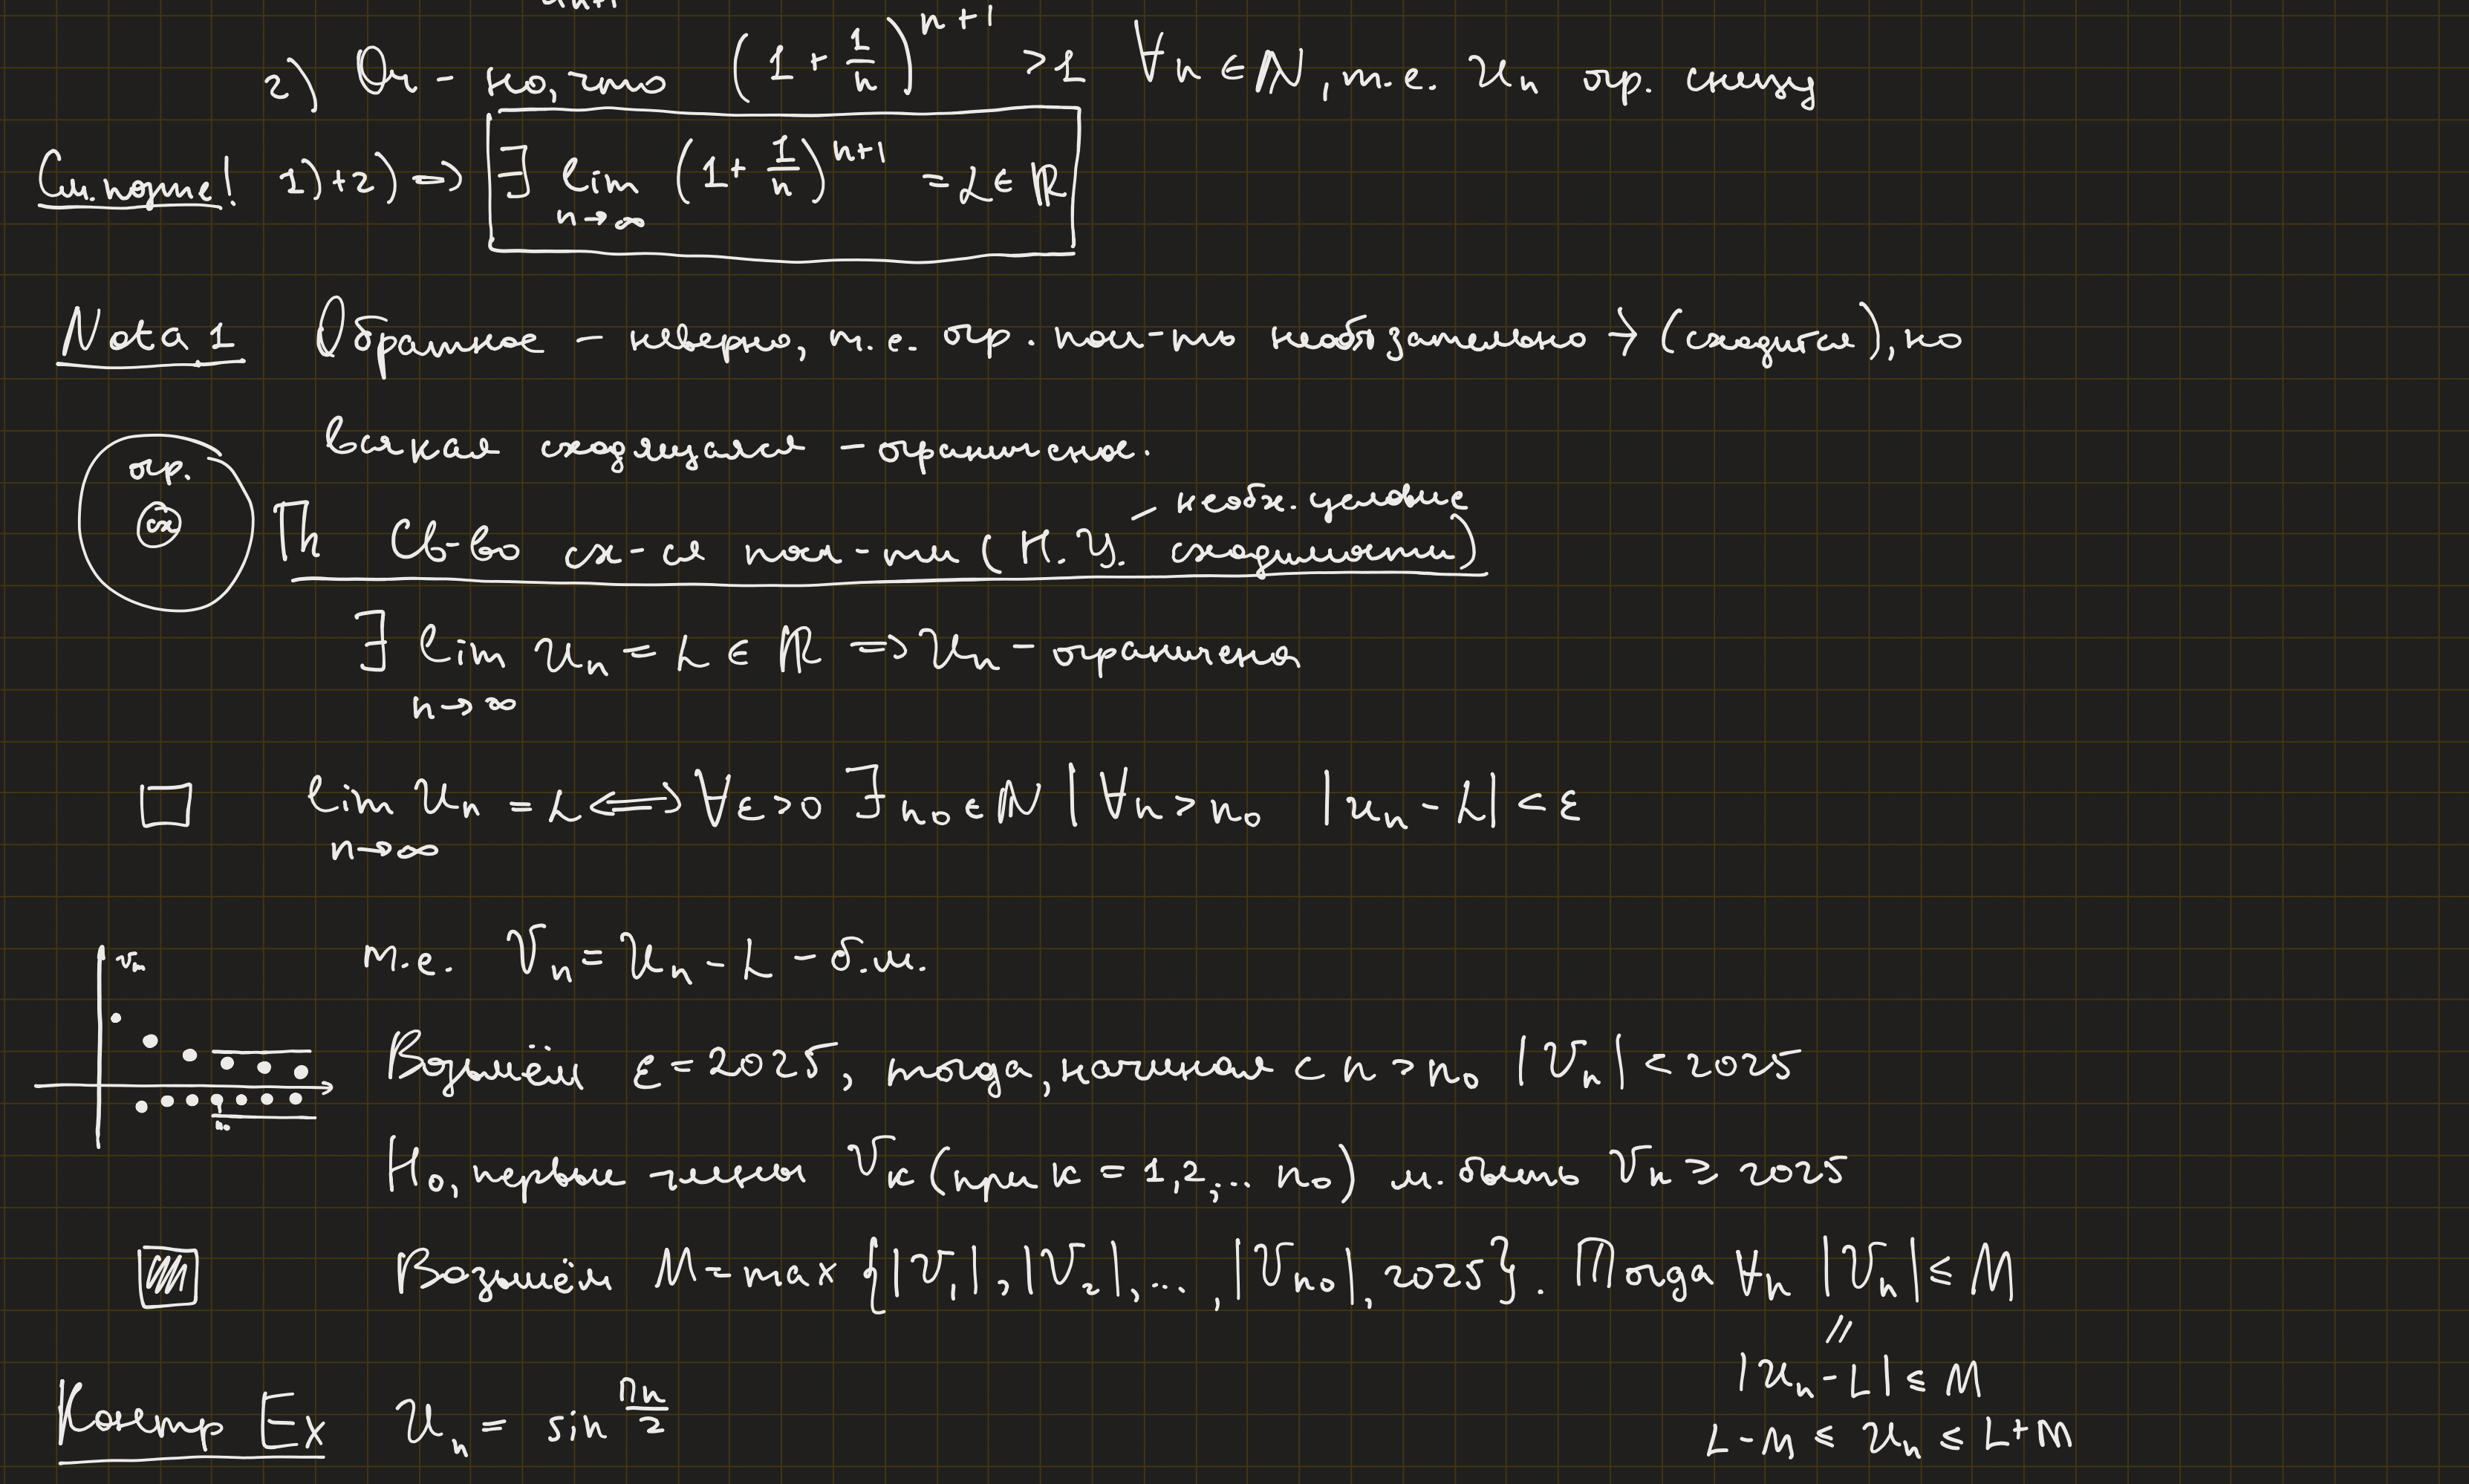 2) Оч-но, что (1 + 1/n)^(n+1) > 1 ∀n ∈ ℕ, т.е. uₙ огр. снизу
См. позже! 1)+2) ⇒ ∃ lim n→∞ (1 + 1/n)^(n+1) = L ∈ ℝ
Nota 1 Обратное – неверно, т.е. огр. посл-ть необязательно → (сходится), но
всякая сходящаяся – ограничена.
огр.
сх
необх. условие
Th Св-во сх-ся посл-ти (Н.У. сходимости)
∃ lim n→∞ uₙ = L ∈ ℝ ⇒ uₙ – ограничена
□ lim n→∞ uₙ = L ⟺ ∀ε>0 ∃n₀∈ℕ | ∀n>n₀ |uₙ – L| < ε
т.е. vₙ = uₙ – L – б.м.
vₙ
Возьмём ε = 2025, тогда, начиная с n > n₀ |vₙ| < 2025
n₀
Но, первые члены vₖ (при k = 1,2,... n₀) м. быть vₖ ≥ 2025
Возьмём M = max {|v₁|, |v₂|, ..., |vₙ₀|, 2025}. Тогда ∀n |vₙ| ≤ M
||
|uₙ – L| ≤ M
L – M ≤ uₙ ≤ L + M
Контр Ex uₙ = sin πn/2